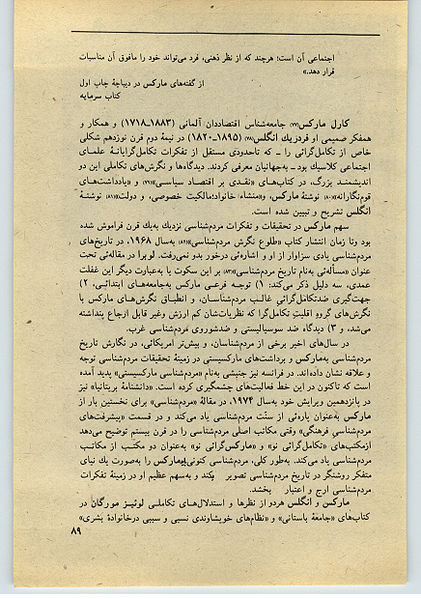 اجتماعی آن است؛ هرچند که از نظر ذهنی، فرد می‌تواند خود را مافوق آن مناسبات
قرار دهد.»
از گفته‌های مارکس در دیباچهٔ چاپ اول
کتاب سرمایه
کارل مارکس(۷۷) جامعه‌شناس اقتصاددان آلمانی (۱۸۸۳ـ۱۷۱۸) و همکار و
همفکر صمیمی او فردریك انگلس(۷۸) (۱۸۹۵ـ۱۸۲۰) در نیمهٔ دوم قرن نوزدهم شکلی
خاص از تکامل‌گرائی را ــ که تاحدودی مستقل از تفکرات تکامل‌گرایانهٔ علمای
اجتماعی کلاسیك بود ــ به‌جهانیان معرفی کردند. دیدگاه‌ها و نگرش‌های تکاملی این دو
اندیشمند بزرگ، در کتاب‌های «نقدی بر اقتصاد سیاسی»(۷۹) و «یادداشت‌های
قوم‌نگارانه»(۸۰) نوشتهٔ مارکس، و«منشاء خانواده؛مالکیت خصوصی، و دولت»(۸۱) نوشتهٔ
انگلس تشریح و تبیین شده است.
سهم مارکس در تحقیقات و تفکرات مردم‌شناسی نزدیك به‌یك قرن فراموش شده
بود وتا زمان انتشار کتاب «طلوع نگرش مردم‌شناسی»(۸۲) به‌سال ۱۹۶۸، در تاریخ‌های
مردم‌شناسی یادی سزاوار از او و اشاره‌ئی درخور بدو نمی‌رفت. لوبرا در مقاله‌ئی تحت
عنوان «مسأله‌ئی به‌نام تاریخ مردم‌شناسی»(۸۳) بر این سکوت یا به‌عبارت دیگر این غفلت
عمدی، سه دلیل ذکر می‌کند: ۱) توجه فرعی مارکس به‌جامعه‌های ابتدائی، ۲)
جهت‌گیری ضدتکامل‌گرائیِ غالب مردم‌شناسان، و انطباق نگرش‌های مارکس با
نگرش‌های گروه اقلیتِ تکامل‌گرا که نظریات‌شان کم ارزش وغیر قابل ارجاع پنداشته
می‌شد، و ۳) دیدگاه ضد سوسیالیستی و ضدشوروی مردم‌شناسی غرب.
در سال‌های اخیر برخی از مردم‌شناسان، و بیش‌تر آمریکائی، در نگارش تاریخ
مردم‌شناسی به‌مارکس و برداشت‌های مارکسیستی در زمینهٔ تحقیقات مردم‌شناسی توجه
و علاقه نشان داده‌اند. در فرانسه نیز جنبشی به‌نام «مردم‌شناسی مارکسیستی» پدید آمده
است که تاکنون در این خط فعالیت‌های چشمگیری کرده است. «دانشنامهٔ بریتانیا» نیز
در پانزدهمین ویرایش خود به‌سال ۱۹۷۴، در مقالهٔ «مردم‌شناسی» برای نخستین بار از
مارکس به‌عنوان پاره‌ئی از سنّت مردم‌شناسی یاد می‌کند و در قسمت «پیشرفت‌های
مردم‌شناسیِ فرهنگی» وقتی مکاتب اصلی مردم‌شناسی را در قرن بیستم توضیح می‌دهد
ازمکتب‌های «تکامل‌گرائی نو» و «مارکس‌گرائی نو» به‌عنوان دو مکتب از مکاتب
مردم‌شناسی یاد می‌کند. به‌طور کلی، مردم‌شناسی کنونی مارکس را به‌صورت یك نیای
متفکر روشنگر در تاریخ مردم‌شناسی تصویر می‌کند و به‌سهم عظیم او در زمینهٔ تفکرات
مردم‌شناسی ارج و اعتبار بخشد.
مارکس و انگلس هردو از نظرها و استدلال‌های تکاملی لوئیز مورگان در
کتاب‌های «جامعهٔ باستانی» و «نظام‌های خویشاوندی نسبی و سببی درخانوادهٔ بشری»
۸۹